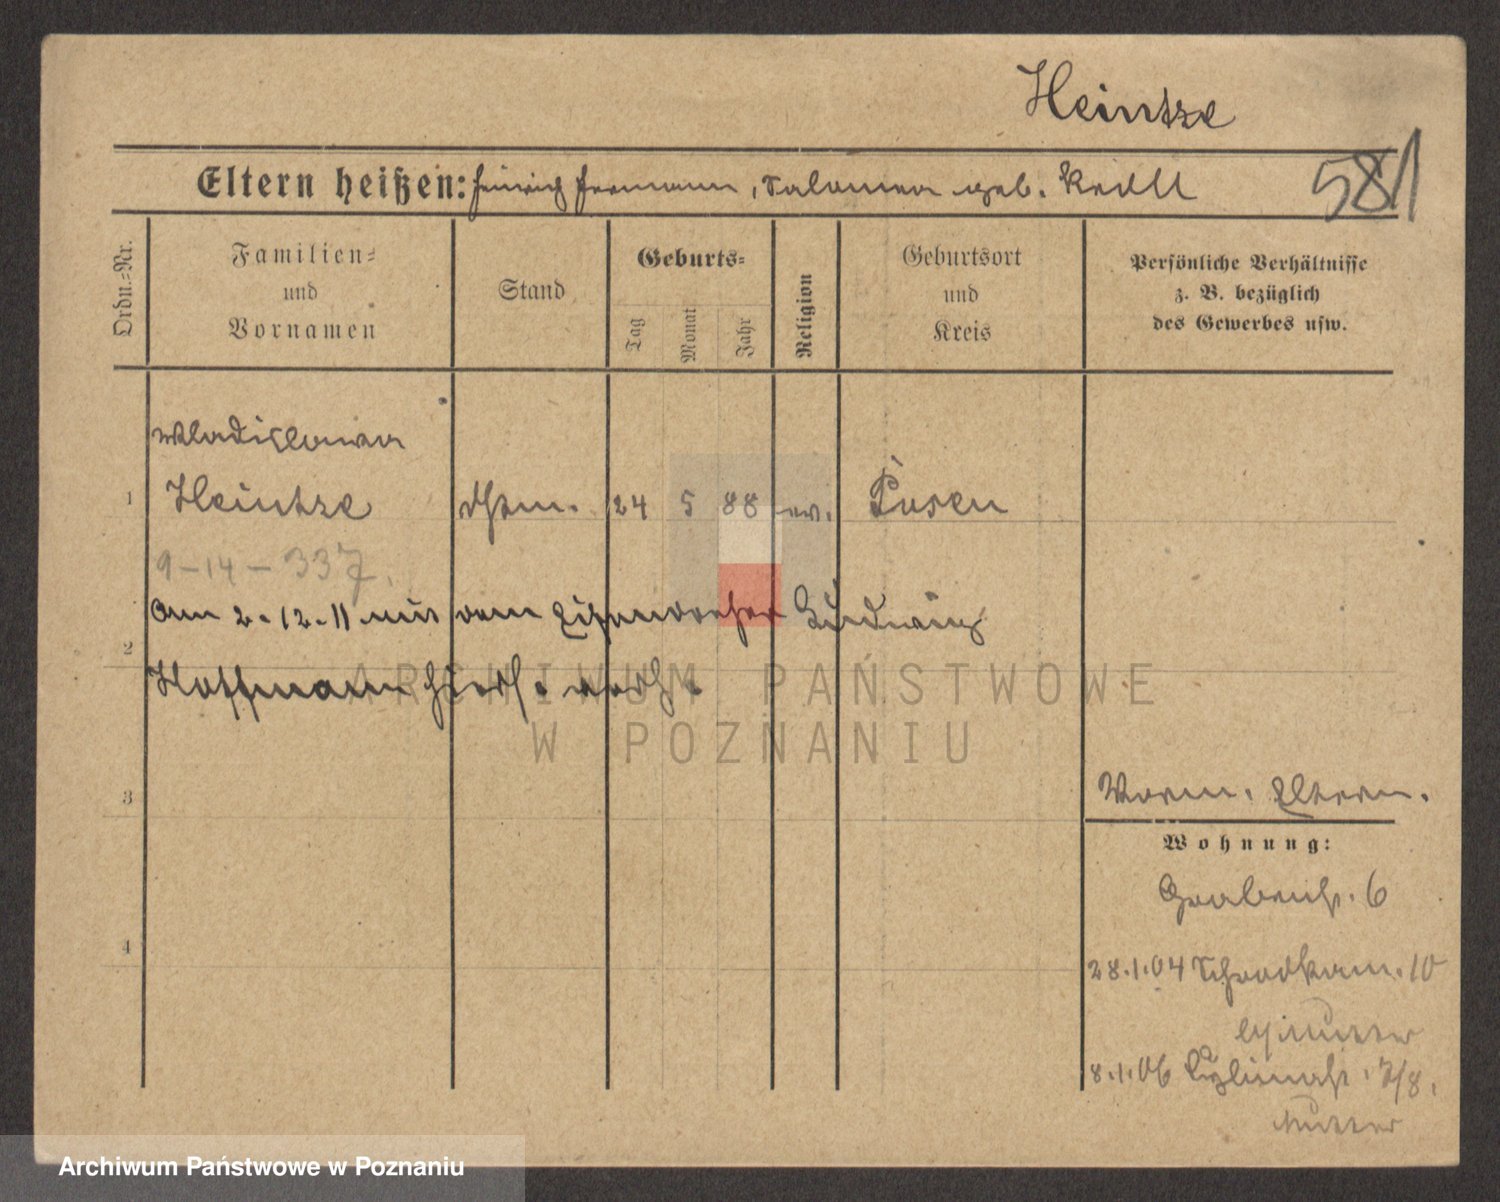 Heintze
581
Eltern heißen: Heinrich Hermann, Salomea geb. Krall
Ordn.-Nr.
Familien-
und
Vornamen
Stand
Geburts-
Tag
Monat
Jahr
Religion
Geburtsort
und
Kreis
Persönliche Verhältnisse
z. B. bezüglich
des Gewerbes usw.
Wladislawa
1 Heintze 24 5 88 ev. Posen
9-14-337.
Am 2.12.11 mit dem Eisendreher Ludwig
2
Hoffmann hier verh.
3
Vorm. Eltern.
Wohnung:
Grabenstr. 6
4
28.1.04 10
b/Mutter
8.1.06 7/8.
Mutter
ARCHIWUM PAŃSTWOWE
W POZNANIU
Archiwum Państwowe w Poznaniu